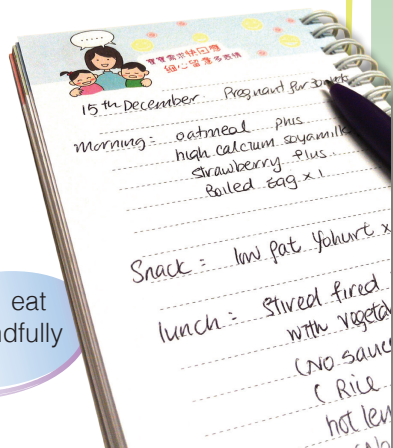 寶寶需求快回應
細心留意多表情
15th December Pregnant for 30
morning: oatmeal plus
high calcium soyamilk
Strawberry Plus.
Boiled Egg x 1
Snack: low fat Yohurt x
lunch: Stired fired
with vegeta
(No sauce
(Rice
hot
eat
dfully